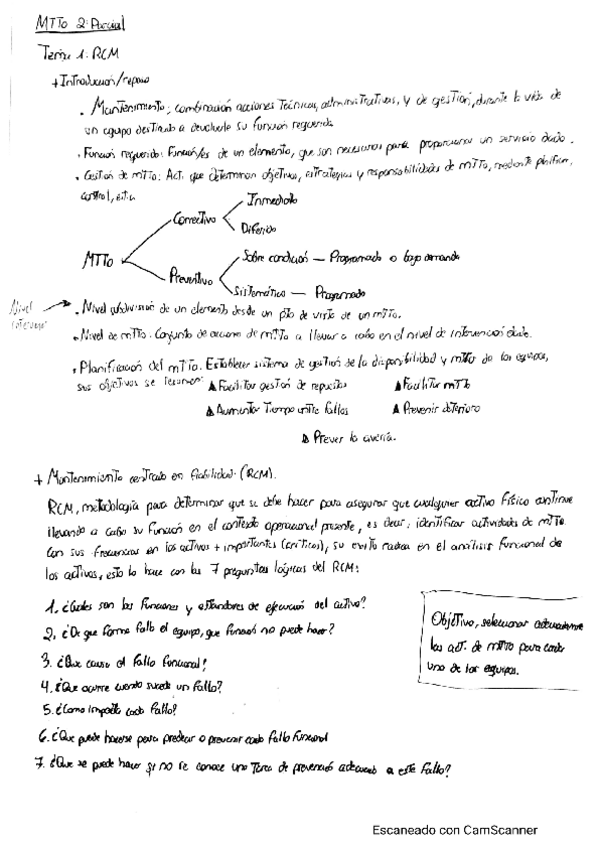 MTTo 2º Parcial
Tema 1: RCM
+ Introducción/repaso
• Mantenimiento: combinación acciones Técnicas, administrativas, y de gestión, durante la vida de
un equipo destinado a devolverle su función requerida.
• Función requerida: función/es de un elemento, que son necesarias para proporcionar un servicio dado.
• Gestión de mtto: Act. que determinan objetivos, estrategias y responsabilidades de mTTo, mediante planificar,
control, etc.
Inmediato
Correctivo
Diferido
MTTo
Sobre condición — Programado o bajo demanda
Preventivo
Sistemático — Programado
Nivel
• Nivel subdivisión de un elemento desde un pto de vista de un mtto.
• Nivel de mtto: Conjunto de acciones de mTTo a llevar a cabo en el nivel de intervención dado.
• Planificación del mTTo. Establecer sistema de gestión de la disponibilidad y mtto de los equipos,
sus objetivos se resumen: ▲ Facilitar gestión de repuestos ▲ Facilitar mtto
▲ Aumentar Tiempo entre fallos ▲ Prevenir deterioro
▲ Prever la avería.
+ Mantenimiento centrado en fiabilidad. (RCM).
RCM, metodología para determinar que se debe hacer para asegurar que cualquier activo físico continue
llevando a cabo su función en el contexto operacional presente, es decir, identificar actividades de mTTo
con sus frecuencias en los activos + importantes (críticos), su exito radica en el análisis funcional de
los activos, esto lo hace con las 7 preguntas lógicas del RCM:
1. ¿Cuáles son las funciones y estandares de ejecución del activo?
2. ¿De que forma falla el equipo, que función no puede hacer?
3. ¿Que causa el fallo funcional?
4. ¿Que ocurre cuando sucede un fallo?
5. ¿Como impacta cada fallo?
6. ¿Que puede hacerse para predecir o prevenir cada fallo funcional
7. ¿Que se puede hacer si no se conoce una Tarea de prevención adecuada a este fallo?
Objetivo, seleccionar adecuadamente
las act. de mtto para cada
uno de los equipos.
Escaneado con CamScanner